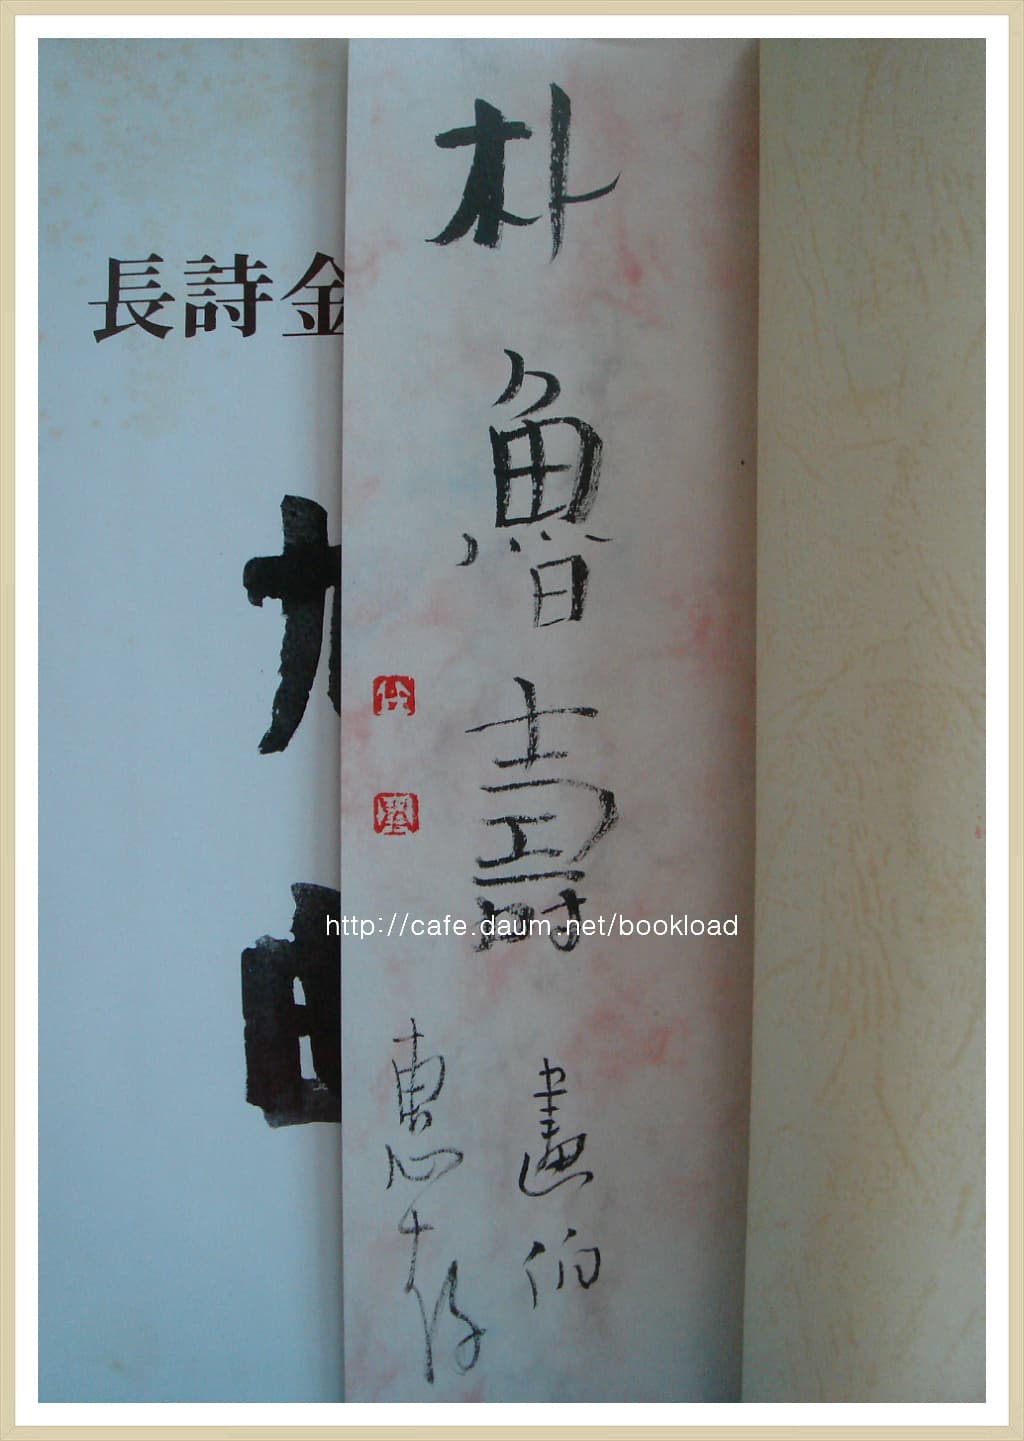 長詩金
朴魯壽
畫伯
惠存
http://cafe.daum.net/bookload